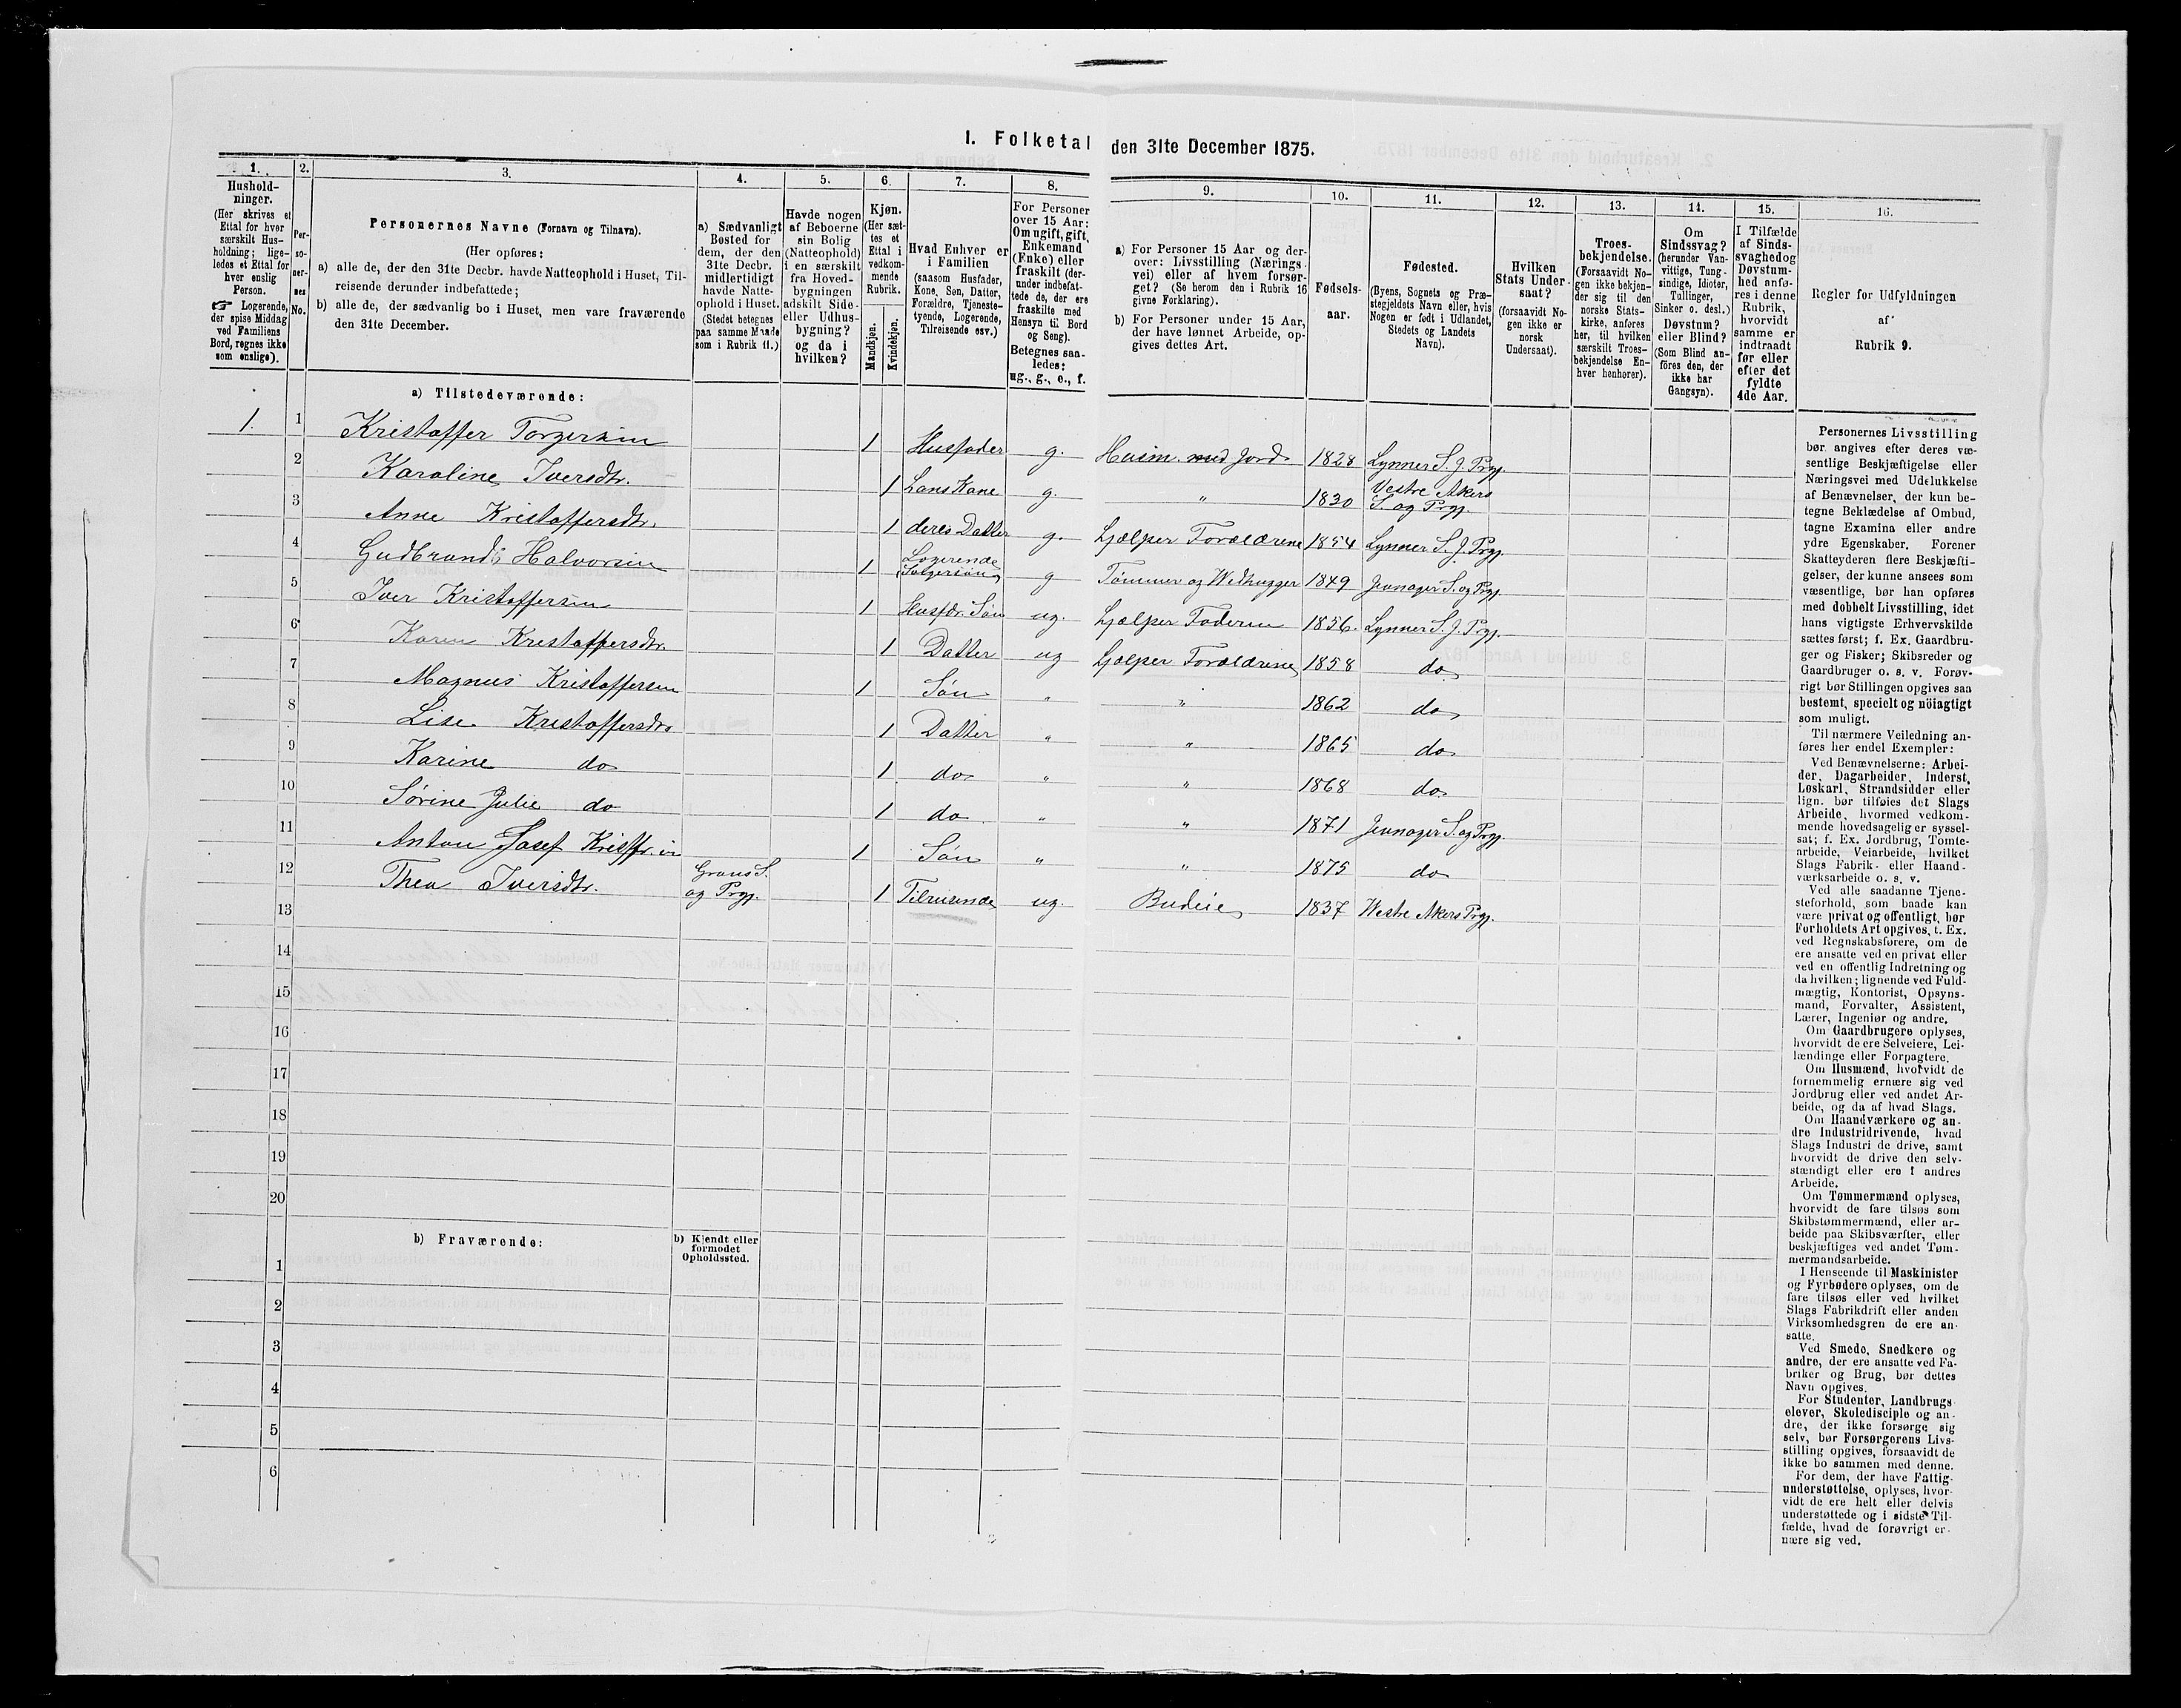 I. Folketal den 31te December 1875.
1. 2. 3. 4. 5. 6. 7. 8. 9. 10. 11. 12. 13. 14. 15. 16.
Hushold-
ninger.
(Her skrives et
Ettal for hver
særskilt Hus-
holdning; lige-
ledes et Ettal for
hver enslig
Person.
☞ Logerende,
der spise Middag
ved Familiens
Bord, regnes ikke
som enslige).
Per-
so-
ner-
nes
No.
Personernes Navne (Fornavn og Tilnavn).
(Her opføres:
a) alle de, der den 31te Decbr. havde Natteophold i Huset, Til-
reisende derunder indbefattede;
b) alle de, der sædvanlig bo i Huset, men vare fraværende
den 31te December.
a) Sædvanligt
Bosted for
dem, der den
31te Decbr.
midlertidigt
havde Natte-
ophold i Huset.
(Stedet betegnes
paa samme Maade
som i Rubrik 11.)
Havde nogen
af Beboerne
sin Bolig
(Natteophold)
i en særskilt
fra Hoved-
bygningen
adskilt Side-
eller Udhus-
bygning?
og da i
hvilken?
Kjøn.
(Her sæt-
tes et
Ettal i
vedkom-
mende
Rubrik.
Mandkjøn.
Kvindekjøn.
Hvad Enhver er
i Familien
(saasom Husfader,
Kone, Søn, Datter,
Forældre, Tjeneste-
tyende, Logerende,
Tilreisende osv.)
For Personer
over 15 Aar:
Om ugift, gift,
Enkemand
(Enke) eller
fraskilt (der-
under indbefat-
tede de, der ere
fraskilte med
Hensyn til Bord
og Seng).
Betegnes saa-
ledes:
ug., g., e., f.
a) For Personer 15 Aar og der-
over: Livsstilling (Nærings-
vei) eller af hvem forsør-
get? (Se herom den i Rubrik 16
givne Forklaring).
b) For Personer under 15 Aar,
der have lønnet Arbeide, op-
gives dettes Art.
Fødsels-
aar.
Fødested.
(Byens, Sognets og Præ-
stegjeldets Navn eller, hvis
Nogen er født i Udlandet,
Stedets og Landets
Navn).
Hvilken
Stats Under-
saat?
(forsaavidt No-
gen ikke er
norsk
Undersaat).
Troes-
bekjendelse.
(Forsaavidt No-
gen ikke bekjen-
der sig til den
norske Stats-
kirke, anføres
her, til hvilken
særskilt Troes-
bekjendelse En-
hver henhører).
Om
Sindssvag?
(herunder Van-
vittige, Tung-
sindige, Idioter,
Tullinger,
Sinker o. desl.)
Døvstum?
eller Blind?
(Som Blind an-
føres den, der
ikke har
Gangsyn).
I Tilfælde
af Sinds-
svaghed og
Døvstum-
hed anfø-
res i denne
Rubrik,
hvorvidt
samme er
indtraadt
før eller
efter det
fyldte
4de Aar.
Regler for Udfyldningen
af
Rubrik 9.
a) Tilstedeværende:
1. 1 Kristoffer Torgersen 1 Husfader g. Husm. med Jord 1828 Lynner S. J. Prgj.
2 Karoline Iversdtr. 1 Hans Kone g. " 1830 Vestre Akers S. og Prgj.
3 Anne Kristoffersdtr. 1 deres Datter g. Hjælper Forældrene 1854 Lynner S. J. Prgj.
4 Gudbrand Halvorsen 1 Logerende g Tømmer og Vedhugger 1849 Jevnager S. og Prgj.
5 Iver Kristoffersen 1 Husfdr. Søn ug. Hjælper Faderen 1856. Lynner S. J. Prgj.
6 Karen Kristoffersdtr. 1 Datter ug Hjælper Forældrene 1858 do
7 Magnus Kristoffersen 1 Søn " " 1862 do
8 Lise Kristoffersdtr 1 Datter " " 1865 do
9 Karine do 1 do " " 1868 do
10 Sørine Julie do 1 do " " 1871 Jevnager S. og Prgj.
11 Anton Josef Kristfr.sn 1 Søn " " 1875 do
12 Thea Iversdtr. Grans S. og Prgj. 1 Tilreisende ug. Budeie 1837 Westre Akers Prgj.
13
14
15
16
17
18
19
20
b) Fraværende:
b) Kjendt eller
formodet
Opholdssted.
1
2
3
4
5
6
Personernes Livsstilling
bør angives efter deres væ-
sentlige Beskjæftigelse eller
Næringsvei med Udelukkelse
af Benævnelser, der kun be-
tegne Beklædelse af Ombud,
tagne Examina eller andre
ydre Egenskaber. Forener
Skatteyderen flere Beskjæfti-
gelser, der kunne ansees som
væsentlige, bør han opføres
med dobbelt Livsstilling, idet
hans vigtigste Erhvervskilde
sættes først; f. Ex. Gaardbru-
ger og Fisker; Skibsreder og
Gaardbruger o. s. v. Forøv-
rigt bør Stillingen opgives saa
bestemt, specielt og nöiagtigt
som muligt.
Til nærmere Veiledning an-
føres her endel Exempler:
Ved Benævnelserne: Arbei-
der, Dagarbeider, Inderst,
Løskarl, Strandsidder eller
lign. bør tilføies det Slags
Arbeide, hvormed vedkom-
mende hovedsagelig er syssel-
sat; f. Ex. Jordbrug, Tomte-
arbeide, Veiarbeide, hvilket
Slags Fabrik- eller Haand-
værksarbeide o. s. v.
Ved alle saadanne Tjene-
steforhold, som baade kan
være privat og offentligt, bør
Forholdets Art opgives, t. Ex.
ved Regnskabsførere, om de
ere ansatte ved en privat eller
ved en offentlig Indretning og
da hvilken; lignende ved Fuld-
mægtig, Kontorist, Opsyns-
mand, Forvalter, Assistent,
Lærer, Ingeniør og andre.
Om Gaardbrugere oplyses,
hvorvidt de ere Selveiere, Lei-
lændinge eller Forpagtere.
Om Husmænd, hvorvidt de
fornemmelig ernære sig ved
Jordbrug eller ved andet Ar-
beide, og da af hvad Slags.
Om Haandværkere og an-
dre Industridrivende, hvad
Slags Industri de drive, samt
hvorvidt de drive den selv-
stændigt eller ere i andres
Arbeide.
Om Tømmermænd oplyses,
hvorvidt de fare tilsøs som
Skibstømmermænd, eller ar-
beide paa Skibsværfter, eller
beskjæftiges ved andet Tøm-
mermandsarbeide.
I Henseende til Maskinister
og Fyrbødere oplyses, om de
fare tilsøs eller ved hvilket
Slags Fabrikdrift eller anden
Virksomhedsgren de ere an-
satte.
Ved Smede, Snedkere og
andre, der ere ansatte ved Fa-
briker og Brug, bør dettes
Navn opgives.
For Studenter, Landbrugs-
elever, Skoledisciple og an-
dre, der ikke forsørge sig
selv, bør Forsørgerens Livs-
stilling opgives, forsaavidt de
ikke bo sammen med denne.
For dem, der have Fattig-
understøttelse, oplyses, hvor-
vidt de ere helt eller delvis
understøttede og i sidste Til-
fælde, hvad de forøvrigt er-
nære sig ved.